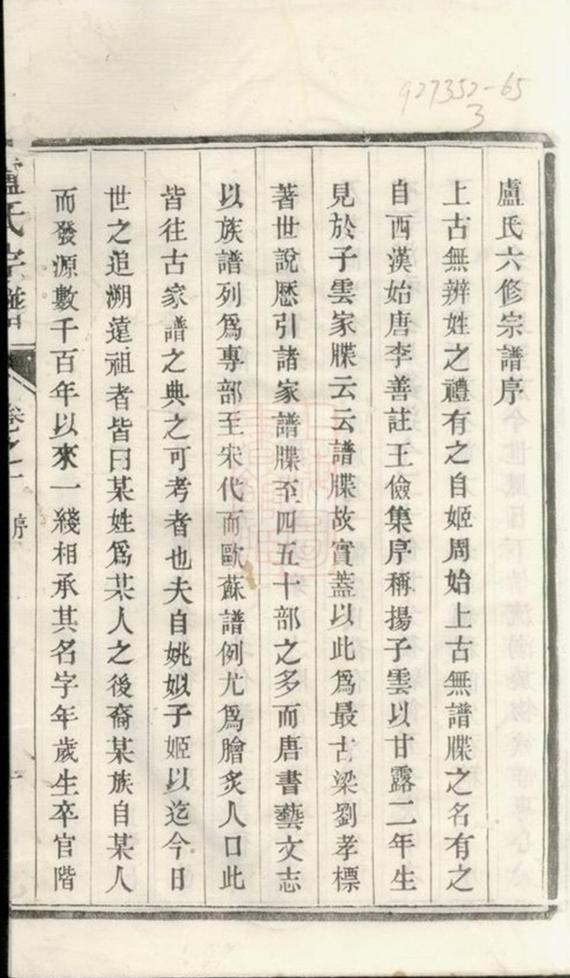 927352-65
3
盧氏六修宗譜序
上古無辨姓之禮有之自姬周始上古無譜牒之名有之
自西漢始唐李善註王儉集序稱揚子雲以甘露二年生
見於子雲家牒云云譜牒故實蓋以此爲最古梁劉孝標
著世說歷引諸家譜牒至四五十部之多而唐書藝文志
以族譜列爲專部至宋代而歐蘇譜例尤爲膾炙人口此
皆往古家譜之典之可考者也夫自姚姒子姬以迄今日
世之追溯遠祖者皆曰某姓爲某人之後裔某族自某人
而發源數千百年以來一綫相承其名字年歲生卒官階
盧氏宗譜
卷之一
序
一